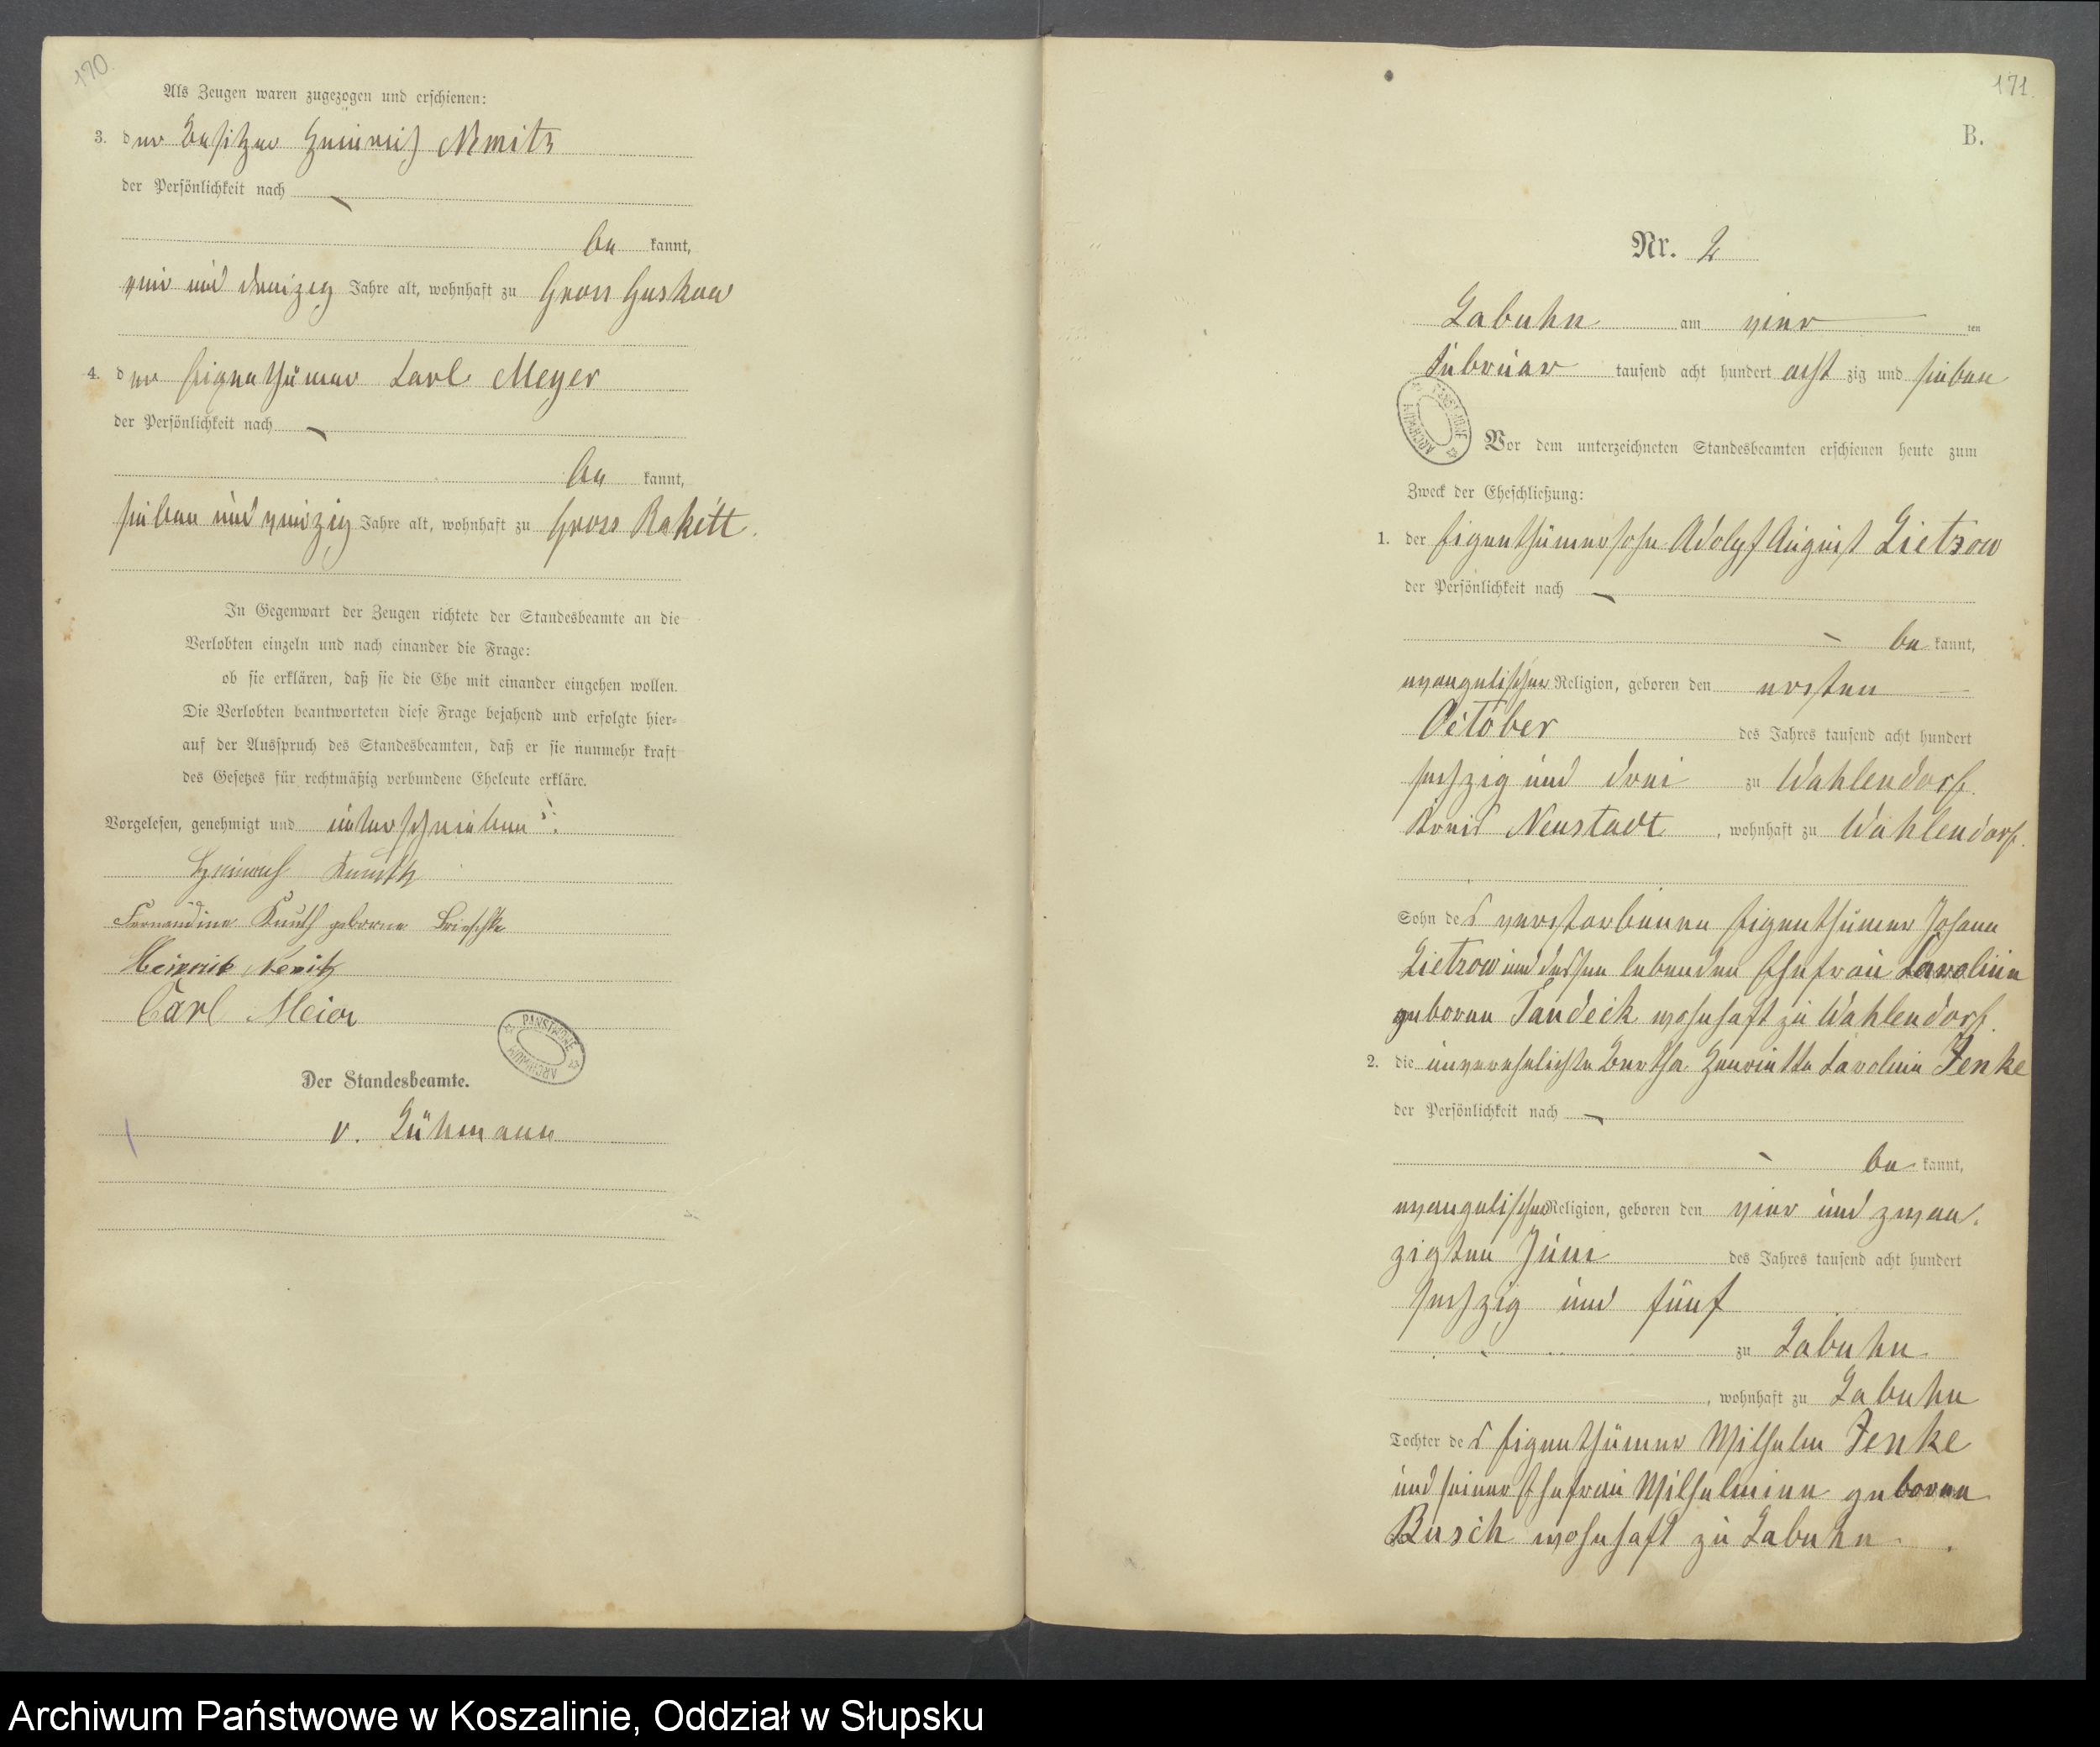 170.
Als Zeugen waren zugezogen und erschienen:
3. der Besitzer Heinrich Nemitz
der Persönlichkeit nach
be kannt,
vier und dreizig Jahre alt, wohnhaft zu Gross Guskow
4. der Eigenthümer Carl Meyer
der Persönlichkeit nach
be kannt,
sieben und vierzig Jahre alt, wohnhaft zu Gross Rakitt.
In Gegenwart der Zeugen richtete der Standesbeamte an die
Verlobten einzeln und nach einander die Frage:
ob sie erklären, daß sie die Ehe mit einander eingehen wollen.
Die Verlobten beantworteten diese Frage bejahend und erfolgte hier-
auf der Ausspruch des Standesbeamten, daß er sie nunmehr kraft
des Gesetzes für rechtmäßig verbundene Eheleute erkläre.
Vorgelesen, genehmigt und unterschrieben:
Heinrich
Fernandine Knuth geborne
Carl Meier
PAŃSTWOWE ARCHIWUM
Der Standesbeamte.
v. Lühmann
171.
B.
Nr. 2
Labuhn am vier ten
Februar tausend acht hundert acht zig und sieben
PAŃSTWOWE ARCHIWUM
Vor dem unterzeichneten Standesbeamten erschienen heute zum
Zweck der Eheschließung:
1. der Eigenthümersohn Adolf August Lietzow
der Persönlichkeit nach
be kannt,
evangelischer Religion, geboren den ersten
October des Jahres tausend acht hundert
sechzig und drei zu Wahlendorf
Kreis Neustadt, wohnhaft zu Wahlendorf.
Sohn des verstorbenen Eigenthümer Johann
Lietzow und dessen lebenden Ehefrau Caroline
geborne Tandeck wohnhaft zu Wahlendorf.
2. die unverehelichte Bertha Henriette Caroline Jenke
der Persönlichkeit nach
be kannt,
evangelischer Religion, geboren den vier und zwan-
zigten Juni des Jahres tausend acht hundert
sechzig und fünf
zu Labuhn
, wohnhaft zu Labuhn
Tochter des Eigenthümer Wilhelm Jenke
und seiner Ehefrau Wilhelmine geborne
Busch wohnhaft zu Labuhn.
Archiwum Państwowe w Koszalinie, Oddział w Słupsku